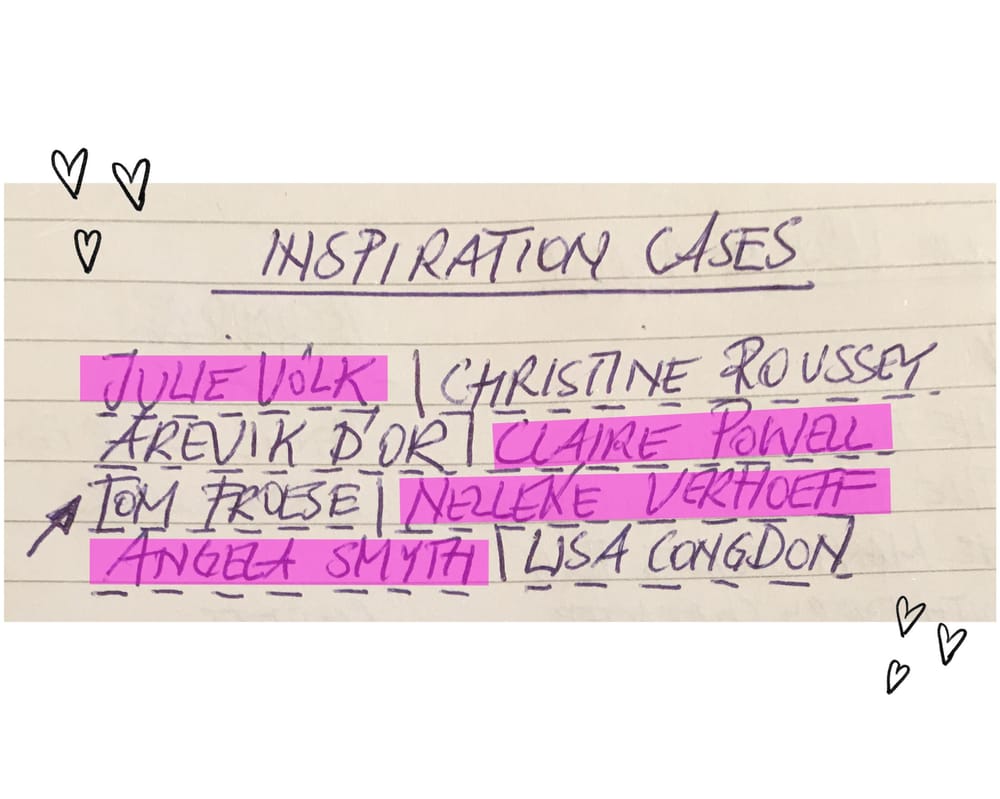 INSPIRATION CASES
JULIE VÓLK | CHRISTINE ROUSSEY
AREVIK D'OR | CLAIRE POWELL
TOM FROESE | NELLEKE VERHOEFF
ANGELA SMYTH | LISA CONGDON